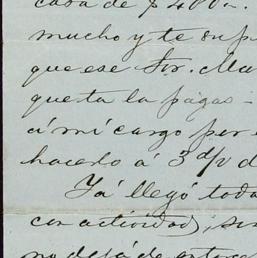 casa de $400.
mucho y te sup
que ese Sor. Ma
que ta la pagas -
á mi cargo por
hacerlo á 3 d/v d
Yá llegó toda
con actividad, sin
no dejá de